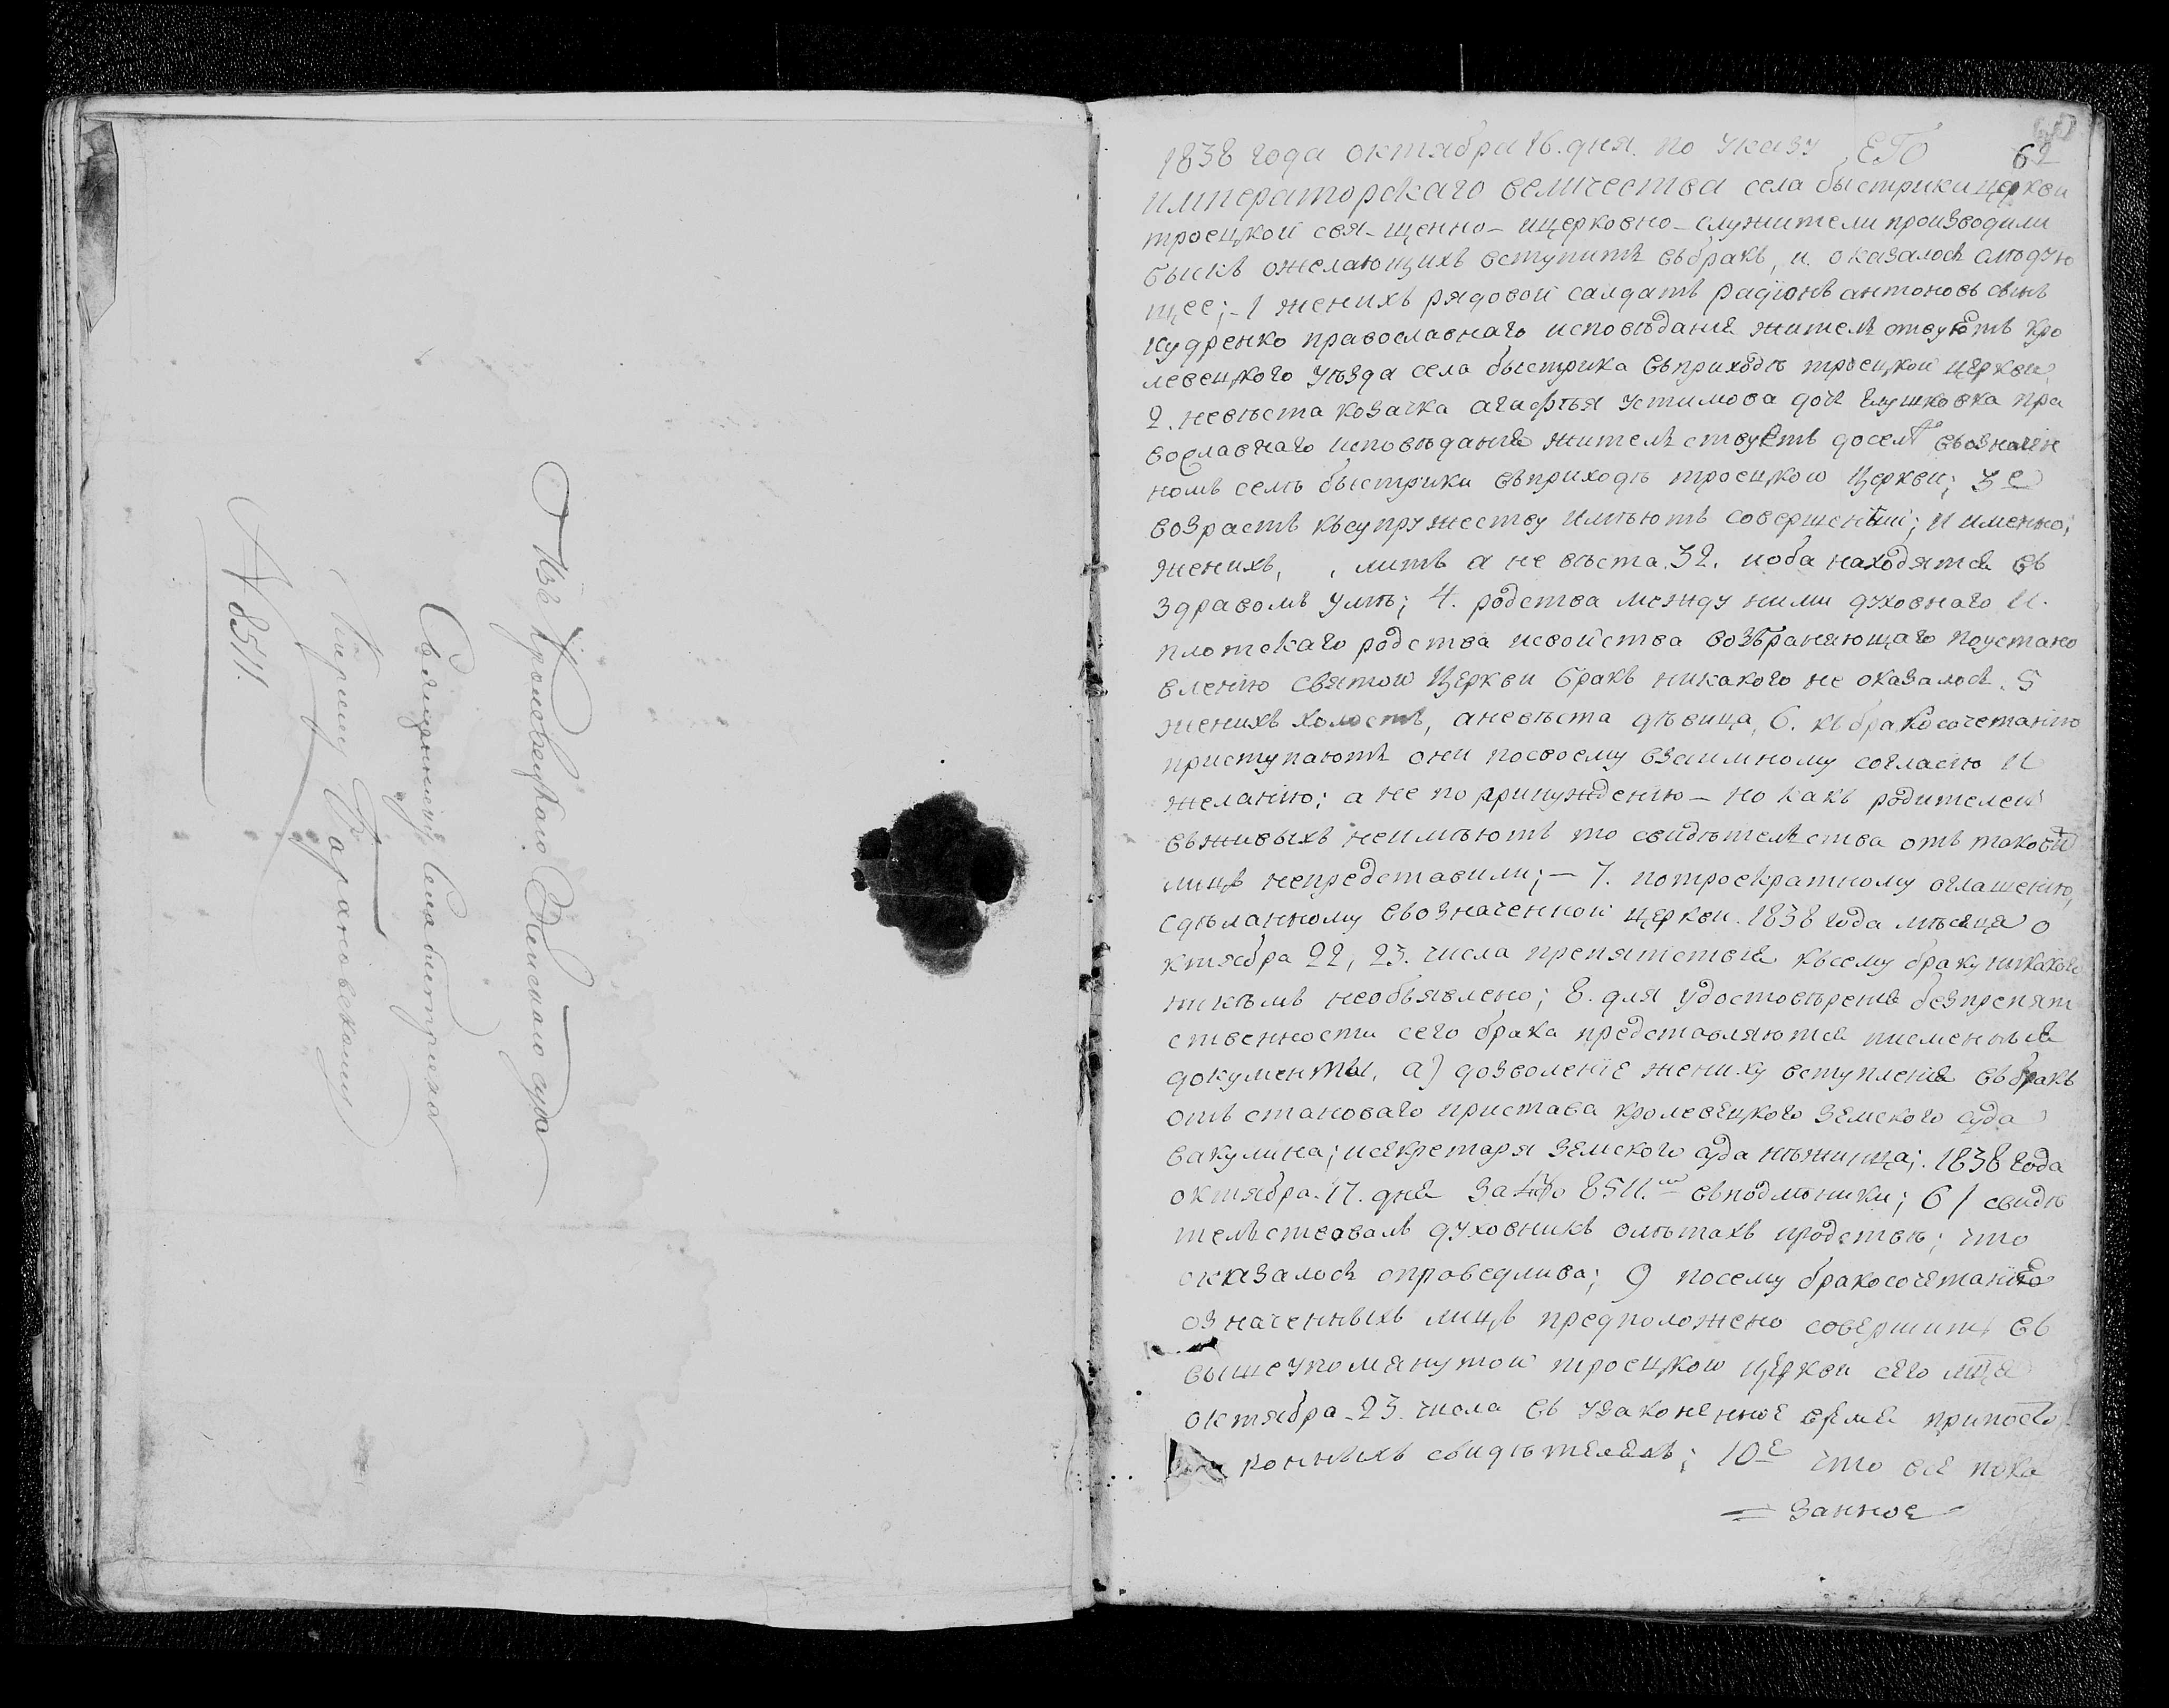 Изъ Кролевецкаго Земскаго суда
Священнику села Быстрика
Кирилу Барановскому
N 8511.
62
1838 года октября 16. дня. по указу ЕГО
императорскаго величества села быстрики церкви
троецкой свя-щенно-ицерковно-служители производили
быскъ ожелающихъ вступитъ въбракъ, и оказалосъ слъдую
щее; - 1 женихъ рядовой салдатъ радіонъ антоновъ сынъ
кудренко православнаго исповъданія жителъствуютъ кро
левецкого уъзда села быстрика въприходъ троецкой церкви
2. невъста козачка агафтья устимова дочъ глушковка пра
вославнаго исповъданія жителъствуетъ доселъ въозначен
номъ селъ быстрики въприходъ троецкой церкви; 3е
возрастъ къ супружеству имъютъ совершенный; и именно;
женихъ, , литъ а не въста. 32. иоба находятся въ
здравомъ умъ; 4. родства между ними духовнаго и
плотскаго родства исвойства возбраняющаго поустано
вленію святой церкви бракъ никакого не оказалосъ. 5
женихъ холостъ, аневъста дъвица, 6. къ бракосочетанію
приступаютъ они посвоему взаимному согласію и
желанію; а не по принужденію - но какъ родителей
въживыхъ неимъютъ то свидътелъства отъ таковы
лицъ непредставили; - 7. потроекратному оглашенію,
сдъланному въозначенной церкви. 1838 года мъсяца о
ктября 22, 23. числа препятствія къ сему браку никакого
никъмъ необъявлено; 8. для удостовъренія безпрепят
ственности сего брака представляются писменныя
документы, а) дозволеніе жениху вступленія въ бракъ
отъ становаго пристава кролевецкого земского суда
вакулина; исекретаря земского суда нъжинца; 1838 года
октября. 17. дня за № 8511. въподлъники; б/ свидъ
телъствовалъ духовникъ олътахъ иродствъ; что
оказалосъ справедлива; 9 посему бракосочетаніе
означенныхъ лицъ предположено совершитъ въ
вышеупомянутой троецкой церкви сего мца
октября - 23. числа въ узаконенное время припосто
ронныхъ свидътеляхъ; 10е что все пока
= занное